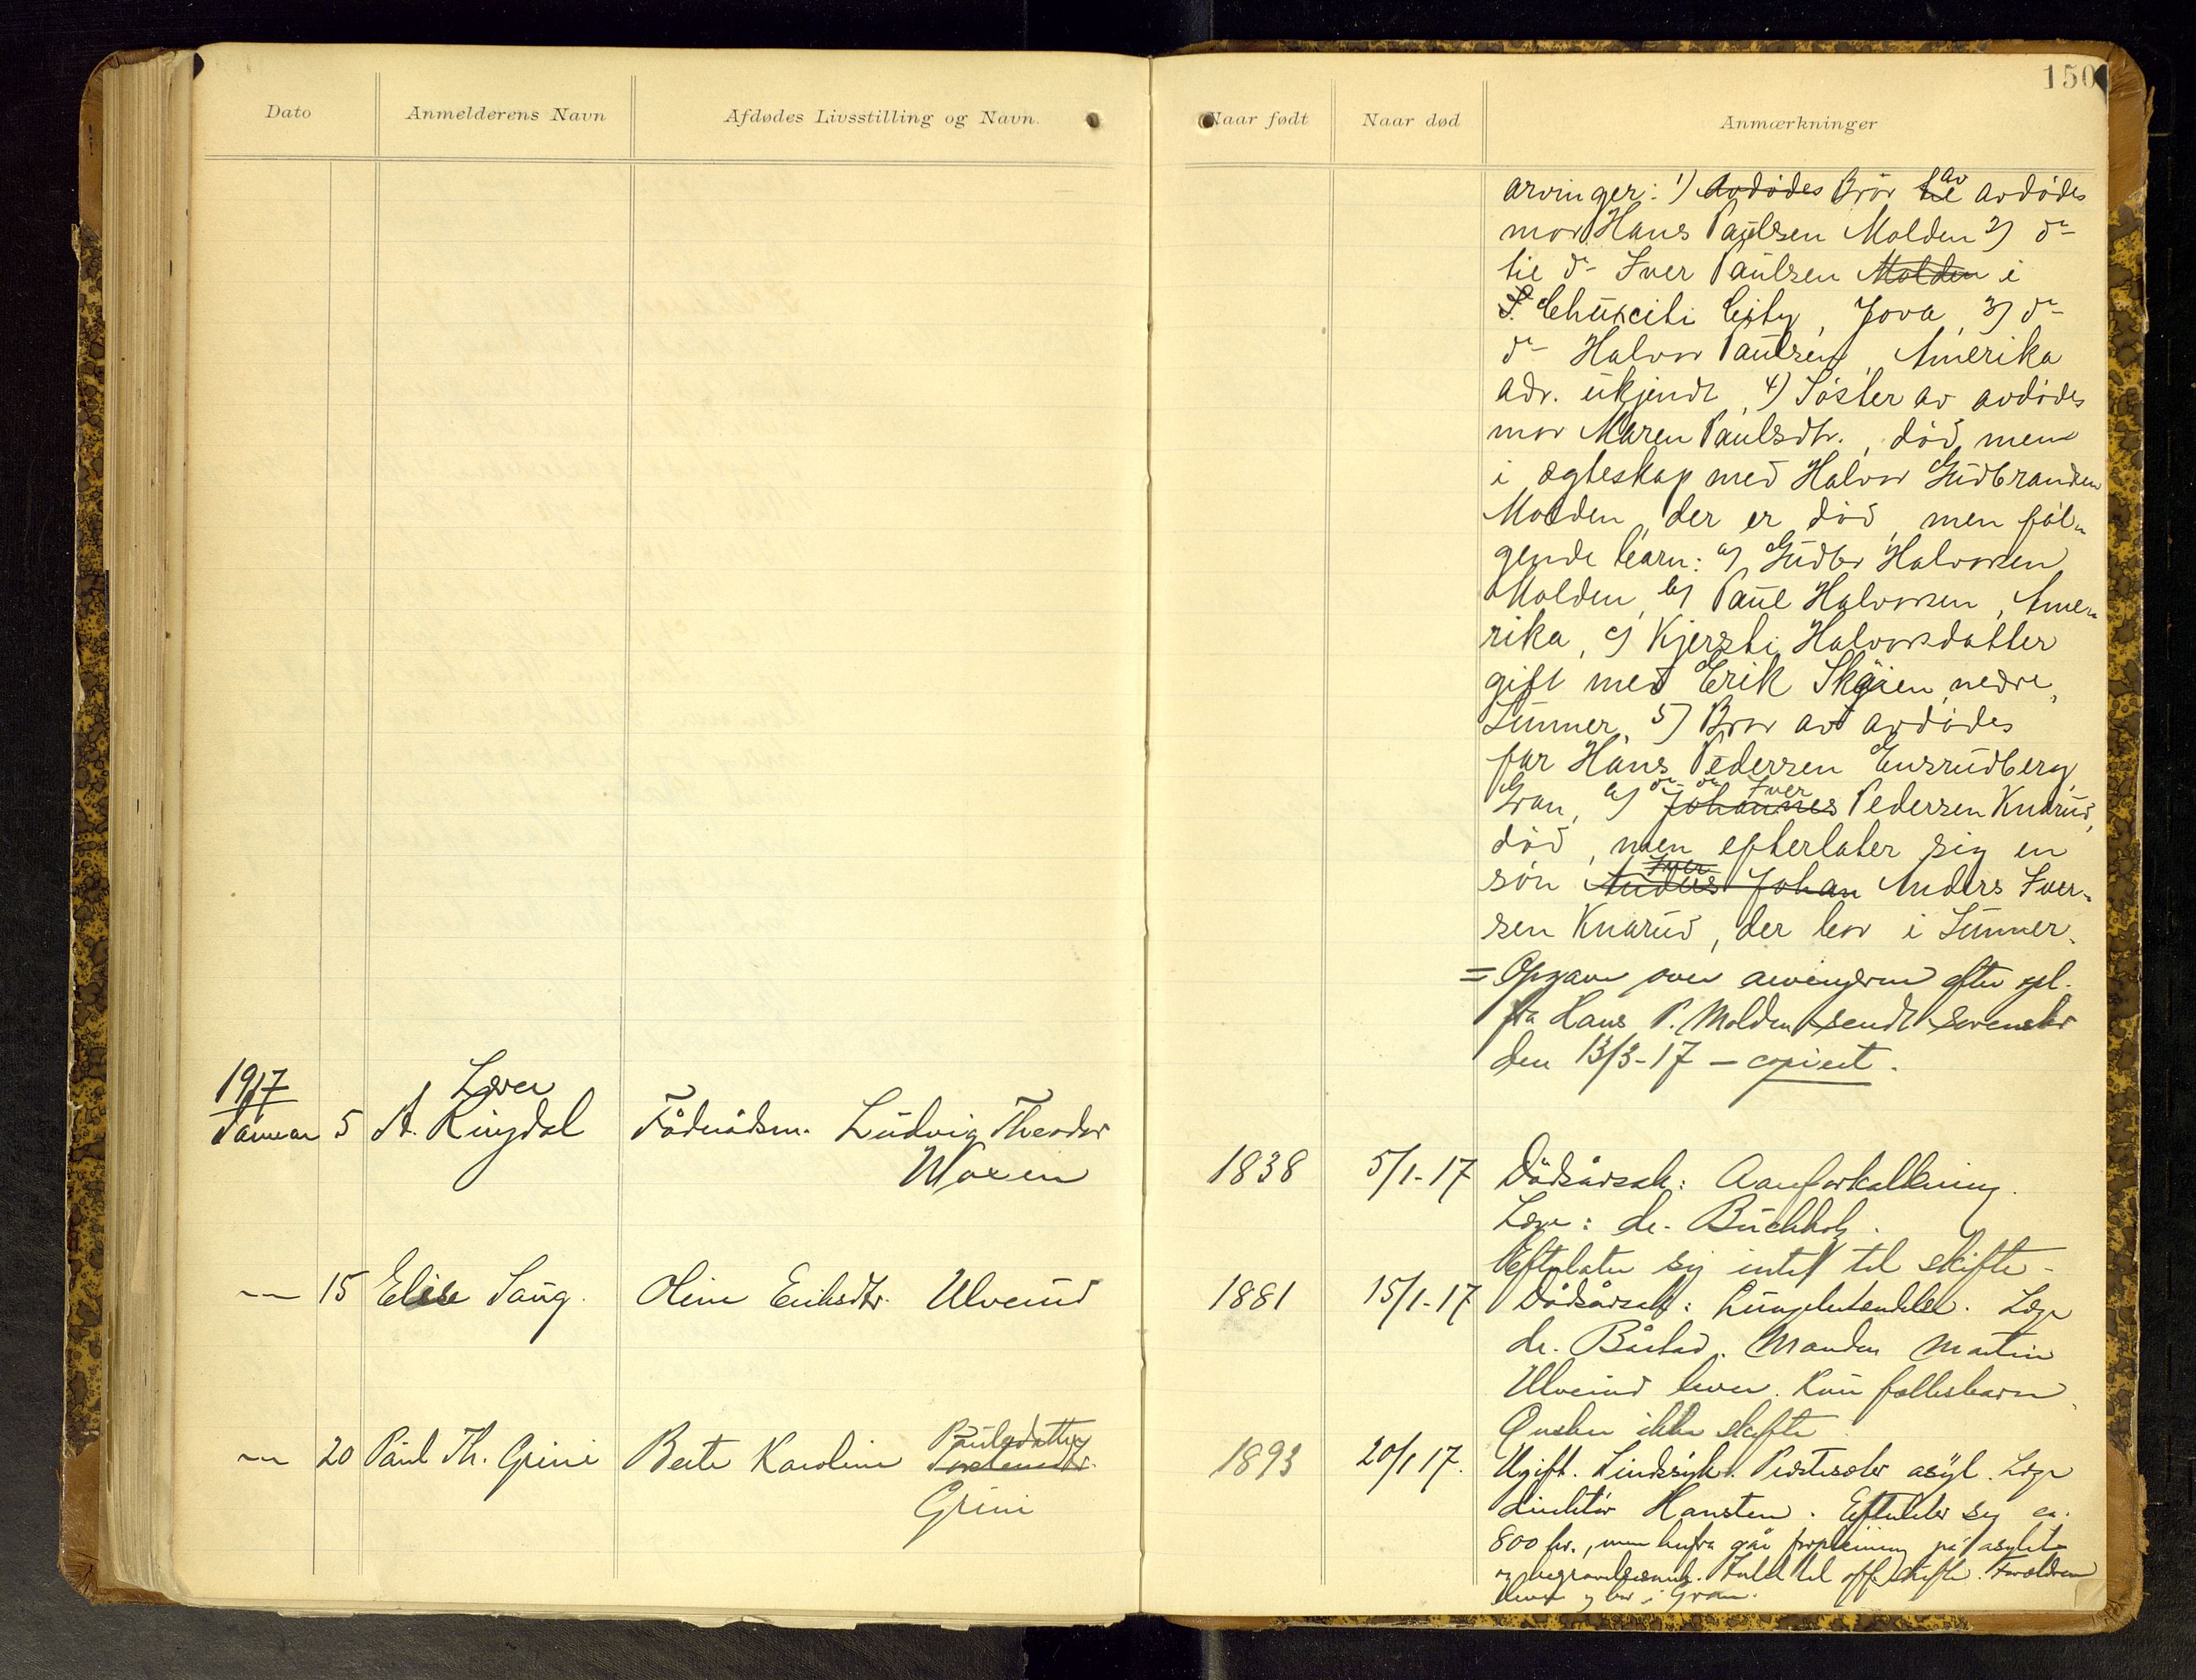 150
Dato
Anmelderens Navn
Afdødes Livsstilling og Navn.
Naar født
Naar død
Anmærkninger
arvinger: 1) Avdødes Bror til av avdødes
mor Hans Paulsen Molden 2) do
til do Iver Paulsen Molden i
City, Jova, 3) do
do Halvor Paulsen, Amerika
adr. ukjendt, 4) Søster av avdødes
mor Maren Paulsdtr., død, men
i ægteskap med Halvor Gudbrandsen
Molden, der er død, men føl-
gende barn: a) Gudbr Halvorsen
Molden, b) Paul Halvorsen, Ame-
rika, c) Kjersti Halvorsdatter
gift med Erik Skøien nedre,
Lunner, 5) Bror av avdødes
far Hans Pedersen Ensrudberg,
Gran, 6) do do Johannes Iver Pedersen Knarud,
død, men efterlater sig en
søn Anders Iver Johan Anders Iver-
sen Knarud, der bor i Lunner.
= Opgave over arvingerne efter opl.
fra Hans P. Molden sendt sorenskr
den 13/3-17 - copiert.
1917
Januar 5 Lever A. Ringdal Ludvig Theodor
Waxen 1838 5/1-17 Dødsårsak: Aareforkalkning.
Læge: dr. Buchholz.
Efterlater sig intet til skifte.
— 15 Elise Saug. Oline Eriksdtr. Ulverud 1881 15/1-17 Dødsårsak: Lungebetændelse. Læge
dr. Båstad. Manden Martin
Ulverud lever. Kun fællesbarn.
Ønsker ikke skifte
— 20 Paul Th. Grini Berte Karoline Paulsdatter
Grini 1893 20/1 17. Ugift. Sindssyk. asyl. Læge
direktør Hansteen. Efterlater sig ca.
800 kr., men herfra går forpleining på asylet
og begravelsesomk. off. skifte. Forældrene
lever og bor i Gran.